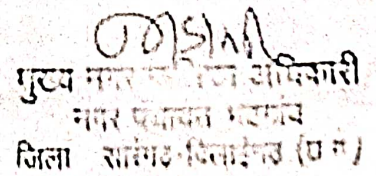 मुख्य नगर पालिका अधिकारी
नगर पंचायत भटगांव
जिला सारंगढ-बिलाईगढ (छ.ग.)